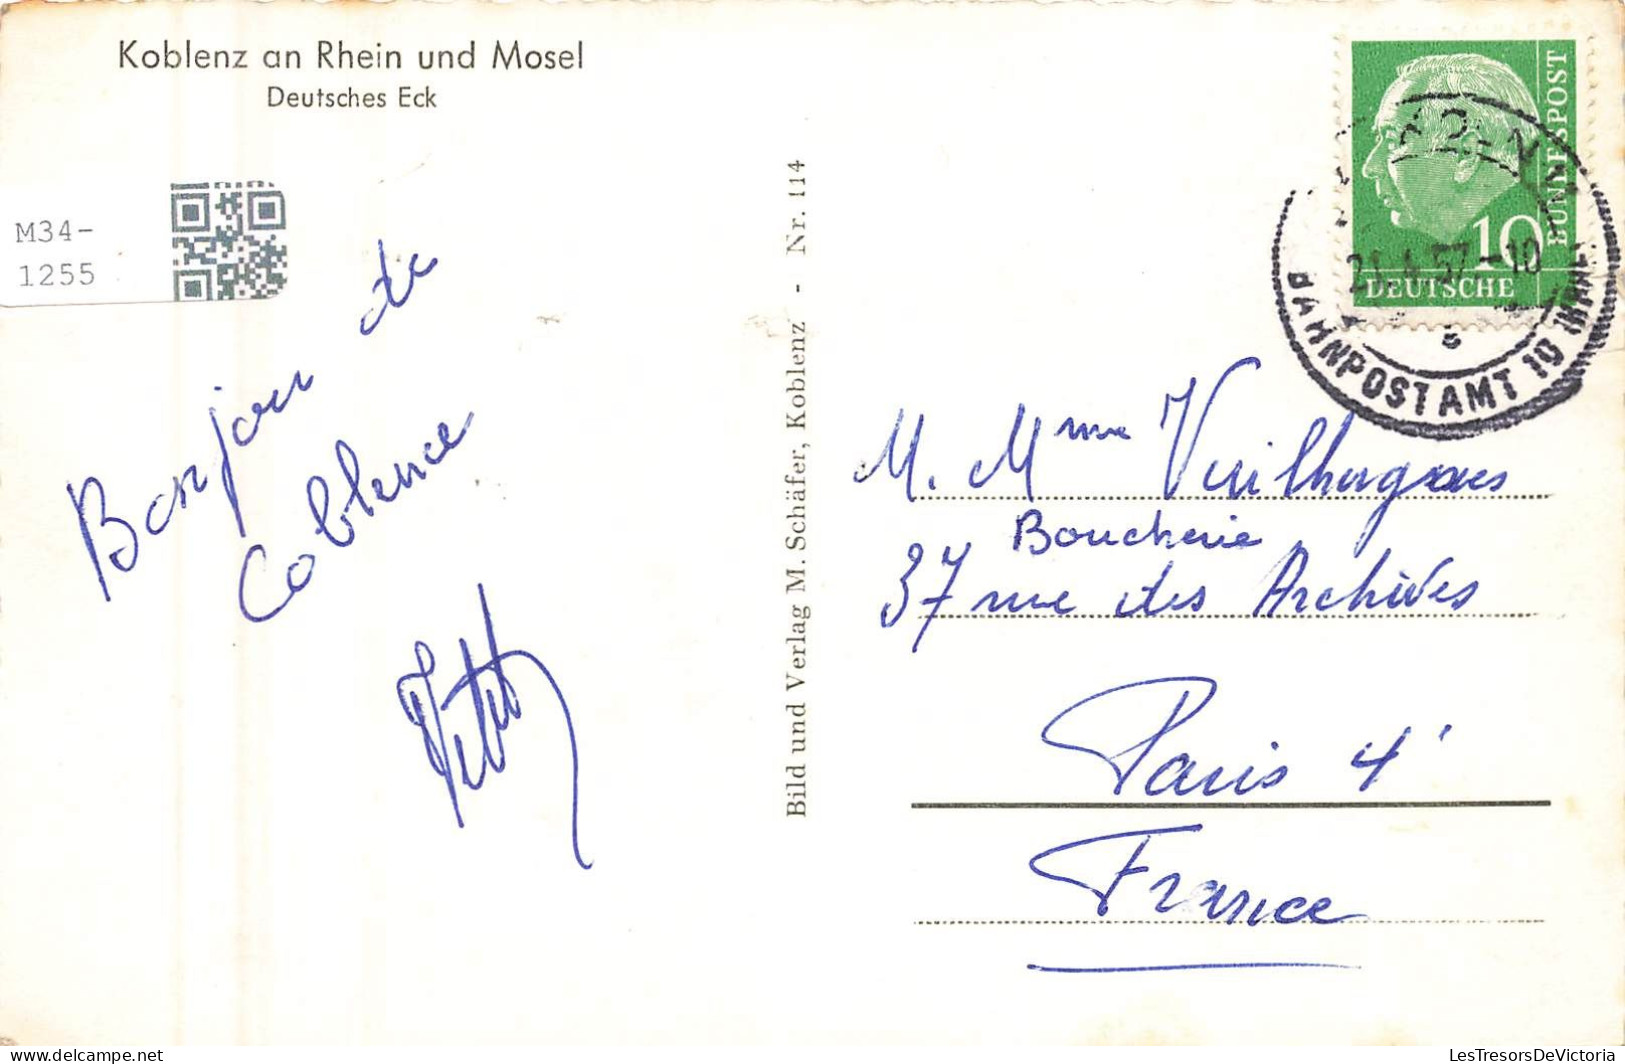 Koblenz an Rhein und Mosel
Deutsches Eck
M34-
1255
Bonjour de
Coblence
Bild und Verlag M. Schäfer, Koblenz - Nr. 114
DEUTSCHE
BUNDESPOST
10
BAHNPOSTAMT 10
M. Mme
Boucherie
37 rue des Archives
Paris 4'
France
delcampe.net
LesTresorsDeVictoria